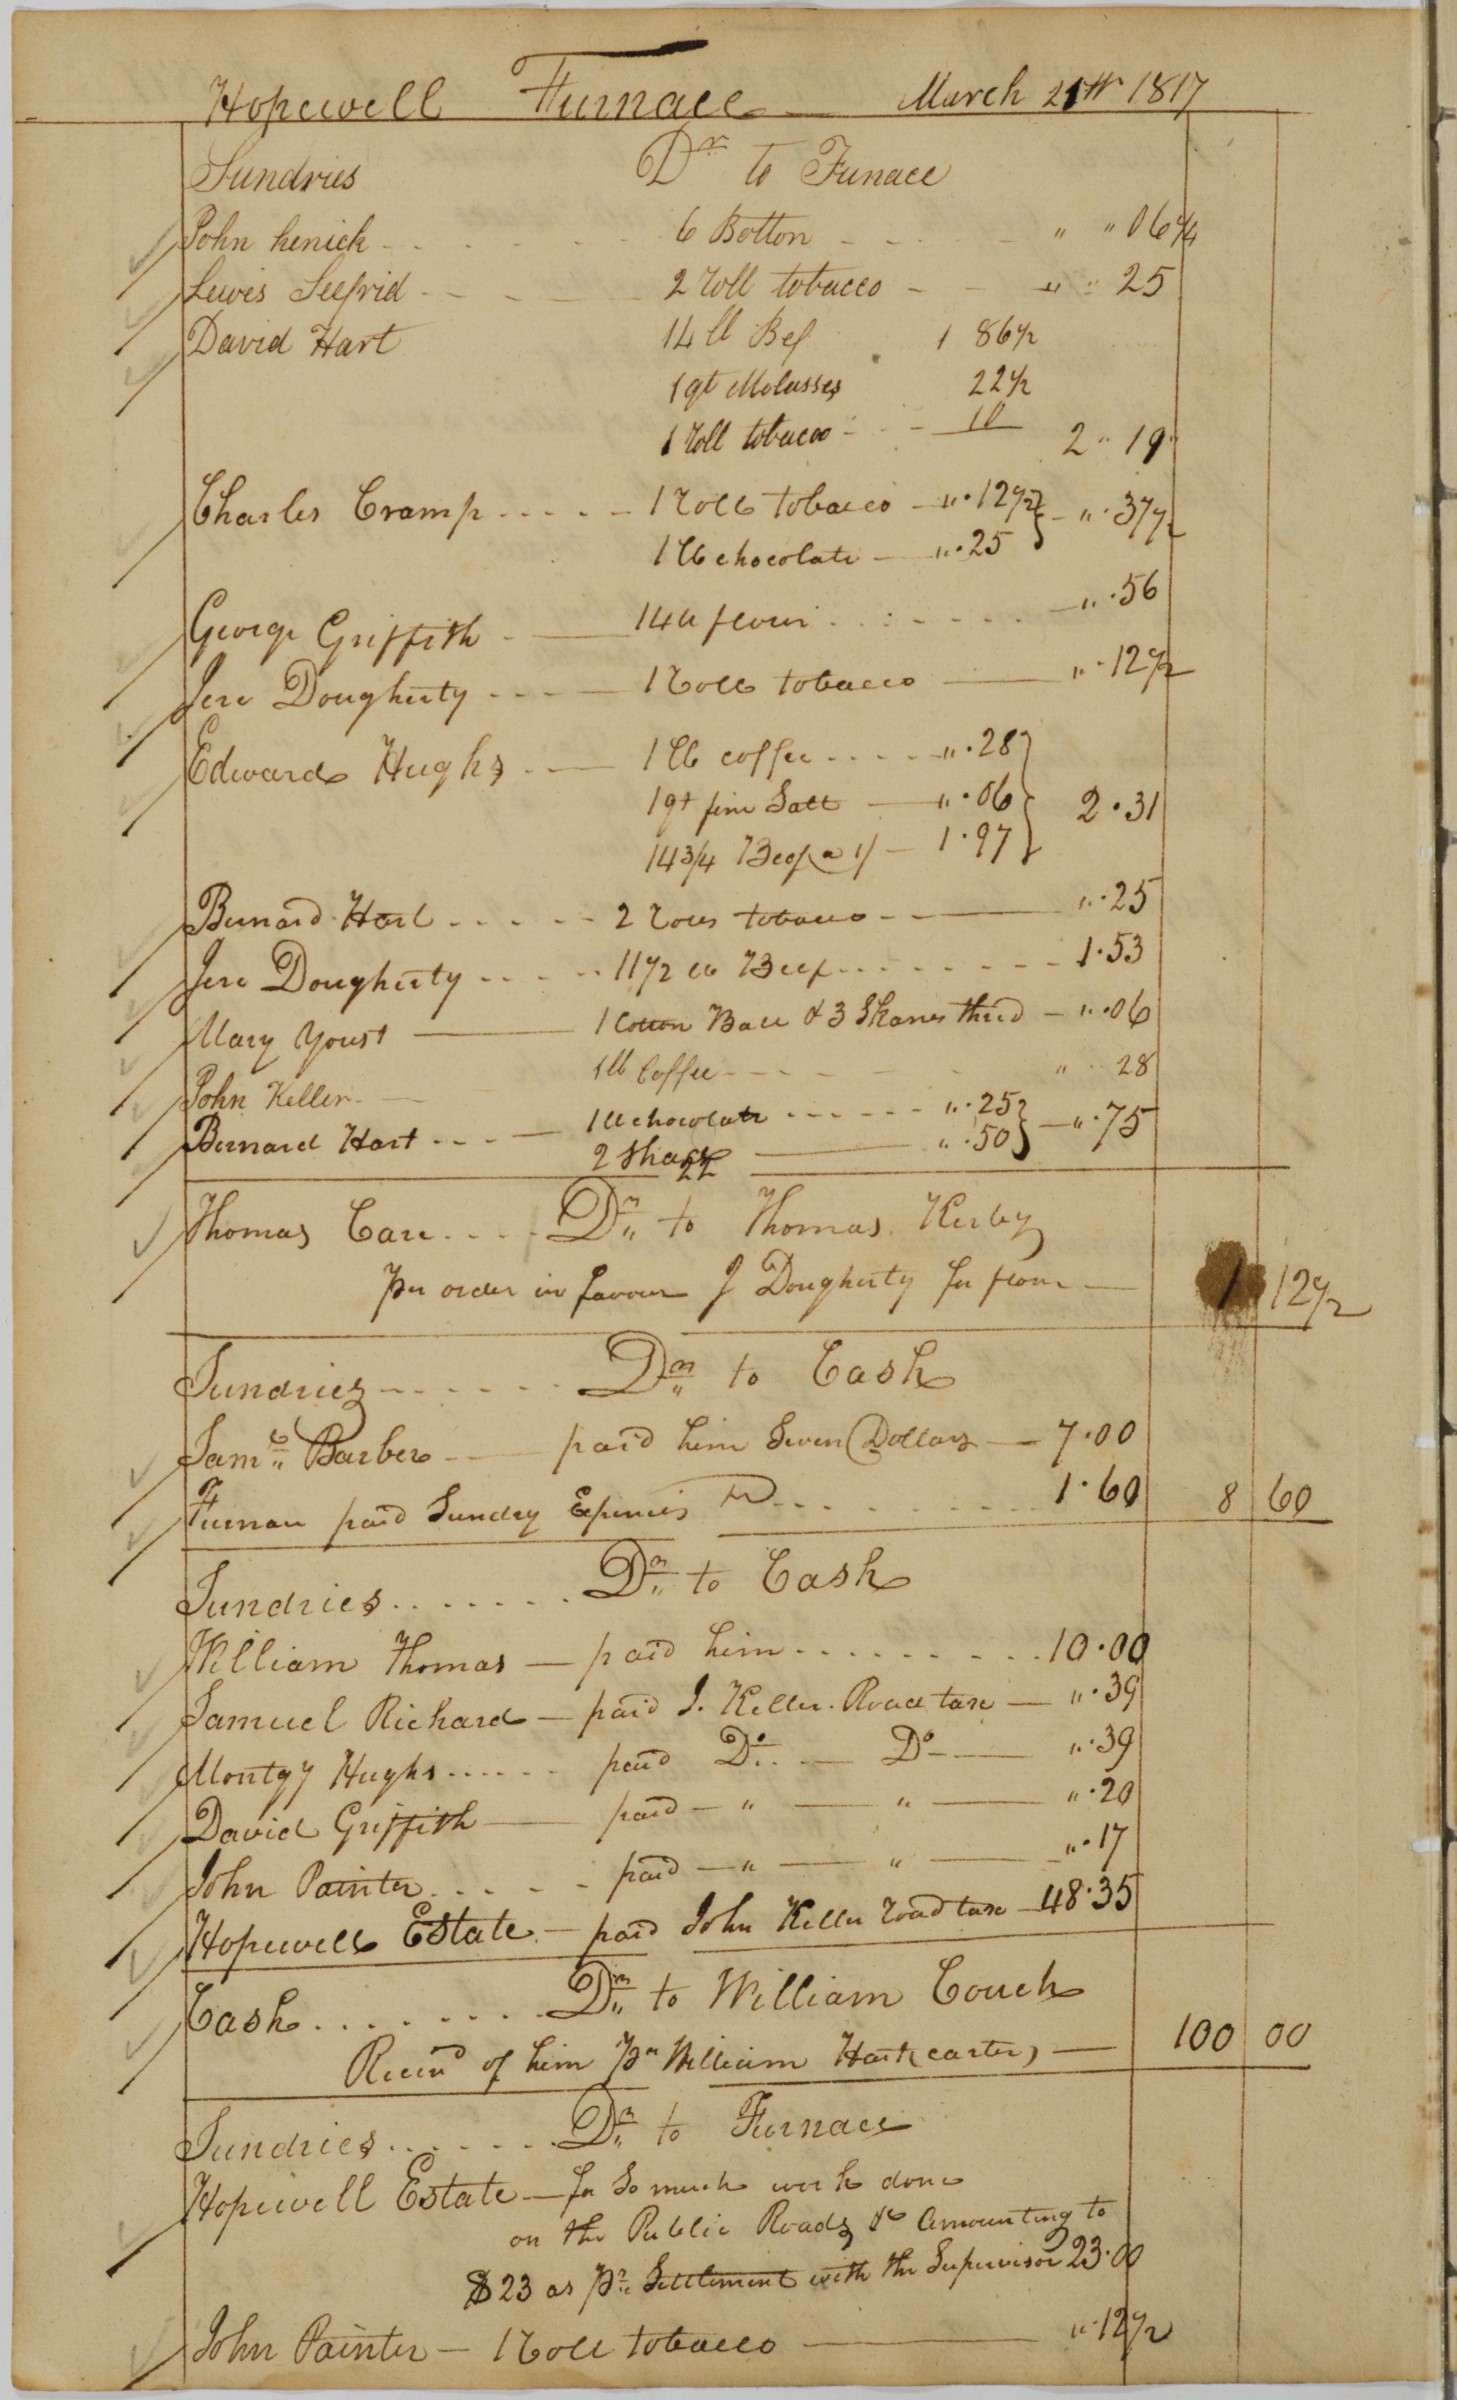 Hopewell Furnace — March 21th 1817
Sundries Dr to Funace
John henick 6 Botton " " 06 1/4
Lewis Seefrid 2 roll tobacco " " 25
David Hart 14 lb Bef 1 86 1/2
1 qt Molasses 22 1/2
1 roll tobacco 10 2 " 19
Charles Cramp 1 Roll tobacco " . 12 1/2 } " . 37 1/2
1 lb chocolate " . 25
George Griffith 14 lb flour " . 56
Jere Dougherty 1 Roll tobacco " . 12 1/2
Edward Hughs 1 lb coffee " . 28 }
1 qt fine Salt " . 06 } 2 . 31
14 3/4 Beef a 1/ 1 . 97 }
Bernard Hart 2 Rolls tobacco " . 25
Jere Dougherty 11 1/2 lb Beef 1 . 53
Mary Youst 1 Cotton Ball & 3 Skanes thred " . 06
John Keller 1 lb Coffee " 28
Bernard Hart 1 lb chocolate " . 25 } " . 75
2 22 " . 50 }
Thomas Care Dr to Thomas Kirby
Per order in favour J Dougherty for flour 1 12 1/2
Sundries Dr to Cash
Saml Barber paid him Seven Dollars 7 . 00
Furnace paid Sundry Expences 1 . 60 8 60
Sundries Dr to Cash
William Thomas paid him 10 . 00
Samuel Richard paid J. Keller Road tax " . 39
Montgy Hughs paid Do Do " . 39
David Griffith paid " " " . 20
John Painter paid " " " . 17
Hopewell Estate paid John Keller road tax 48 . 35
Cash Dr to William Couch
Recivd of him Pr William Hart (carter) 100 00
Sundries Dr to Furnace
Hopewell Estate for So much work done
on the Public Roads &c Amounting to
$ 23 as Pr Settlement with the Supervisor 23 . 00
John Painter 1 Roll tobacco " . 12 1/2